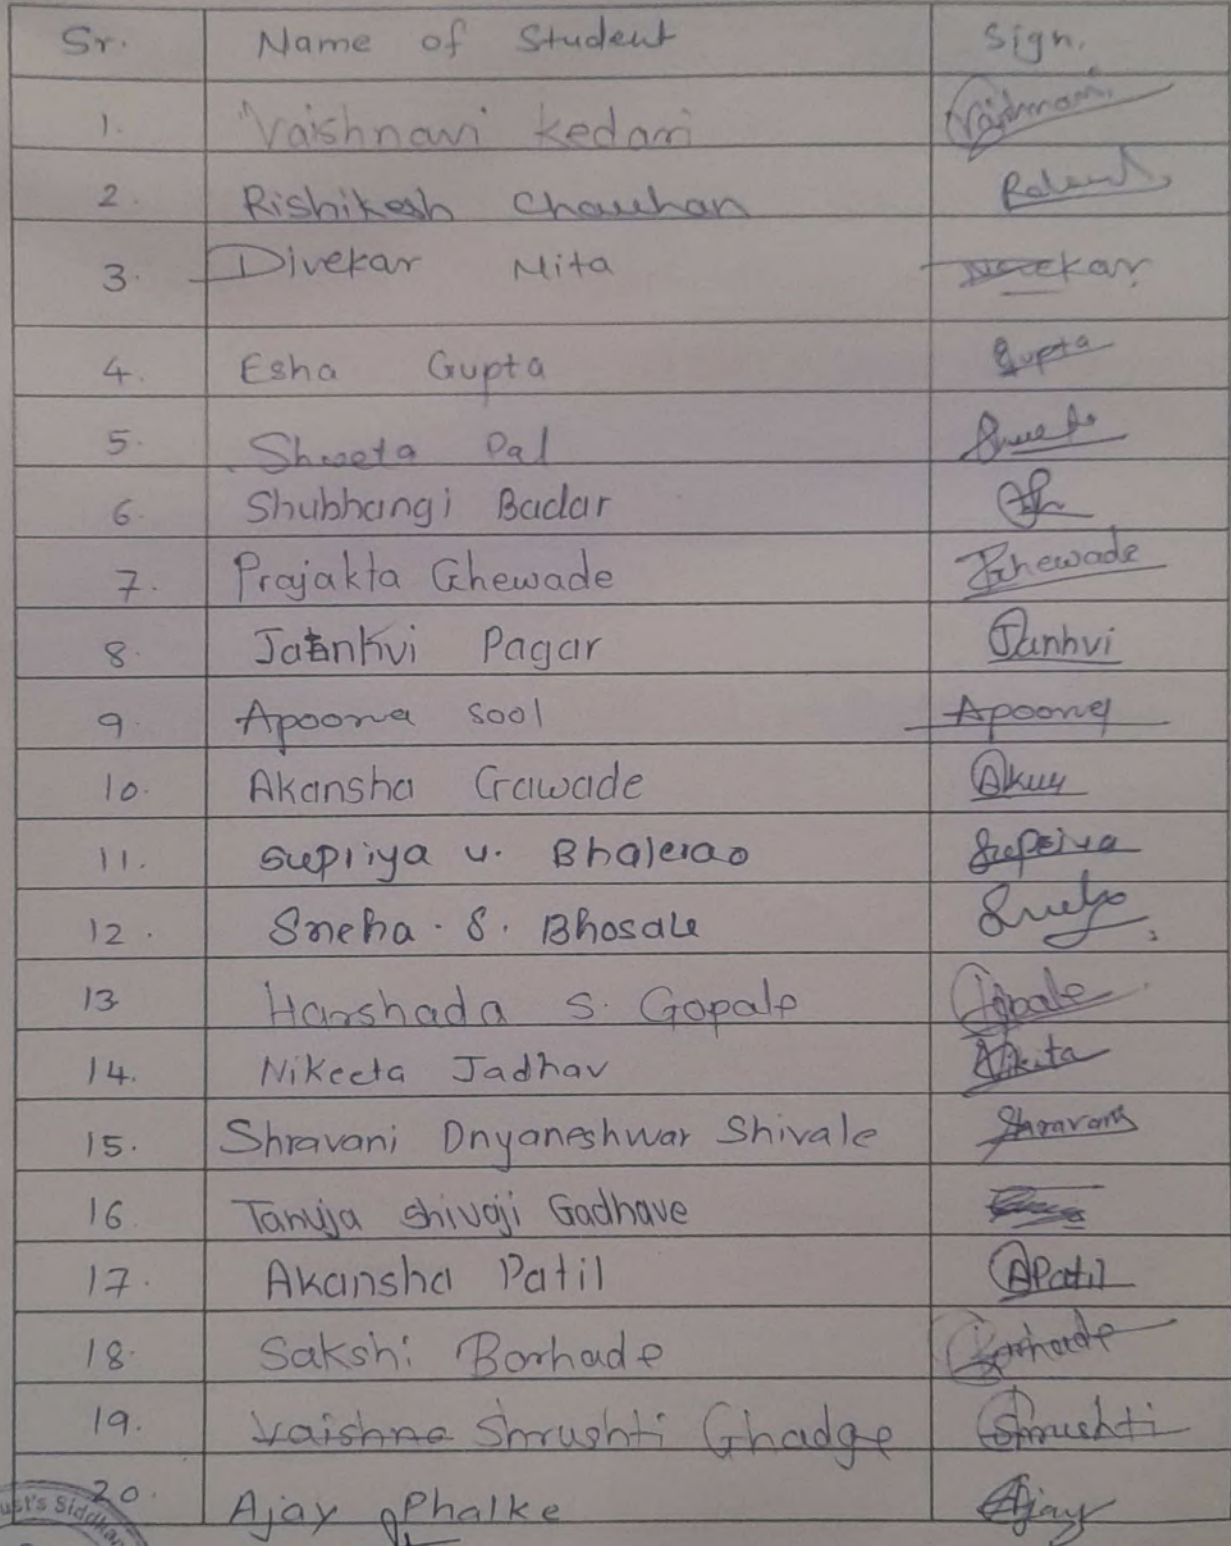 Sr. Name of Student Sign.
1. Vaishnavi Kedari Vaishnavi
2. Rishikesh Chauhan
3. Divekar Nita Divekar
4. Esha Gupta Gupta
5. Shweta Pal Shweta
6. Shubhangi Badar
7. Prajakta Ghewade Ghewade
8. Janhvi Pagar Janhvi
9. Apoorva Sool Apoorva
10. Akansha Gawade
11. Supriya V. Bhalerao Supriya
12. Sneha. S. Bhosale Sneha
13 Harshada S. Gopale Gopale
14. Nikeeta Jadhav Nikita
15. Shravani Dnyaneshwar Shivale Shravani
16. Tanuja Shivaji Gadhave
17. Akansha Patil APatil
18. Sakshi Borhade Borhade
19. Vaishna Shrushti Ghadge Shrushti
20. Ajay Phalke Ajay
ust's Siddhan